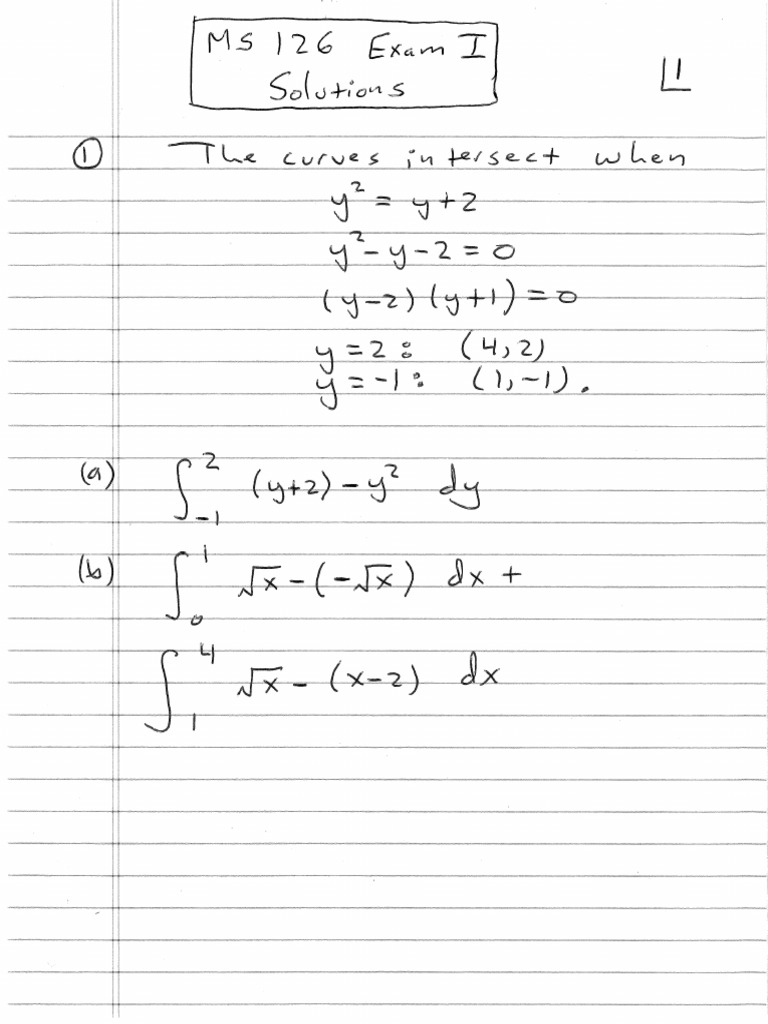 MS 126 Exam I
Solutions
1
① The curves intersect when
y² = y+2
y²-y-2=0
(y-2)(y+1)=0
y=2: (4,2)
y=-1: (1,-1).
(a) ∫_{-1}^{2} (y+2)-y² dy
(b) ∫_{0}^{1} √x-(-√x) dx +
∫_{1}^{4} √x-(x-2) dx